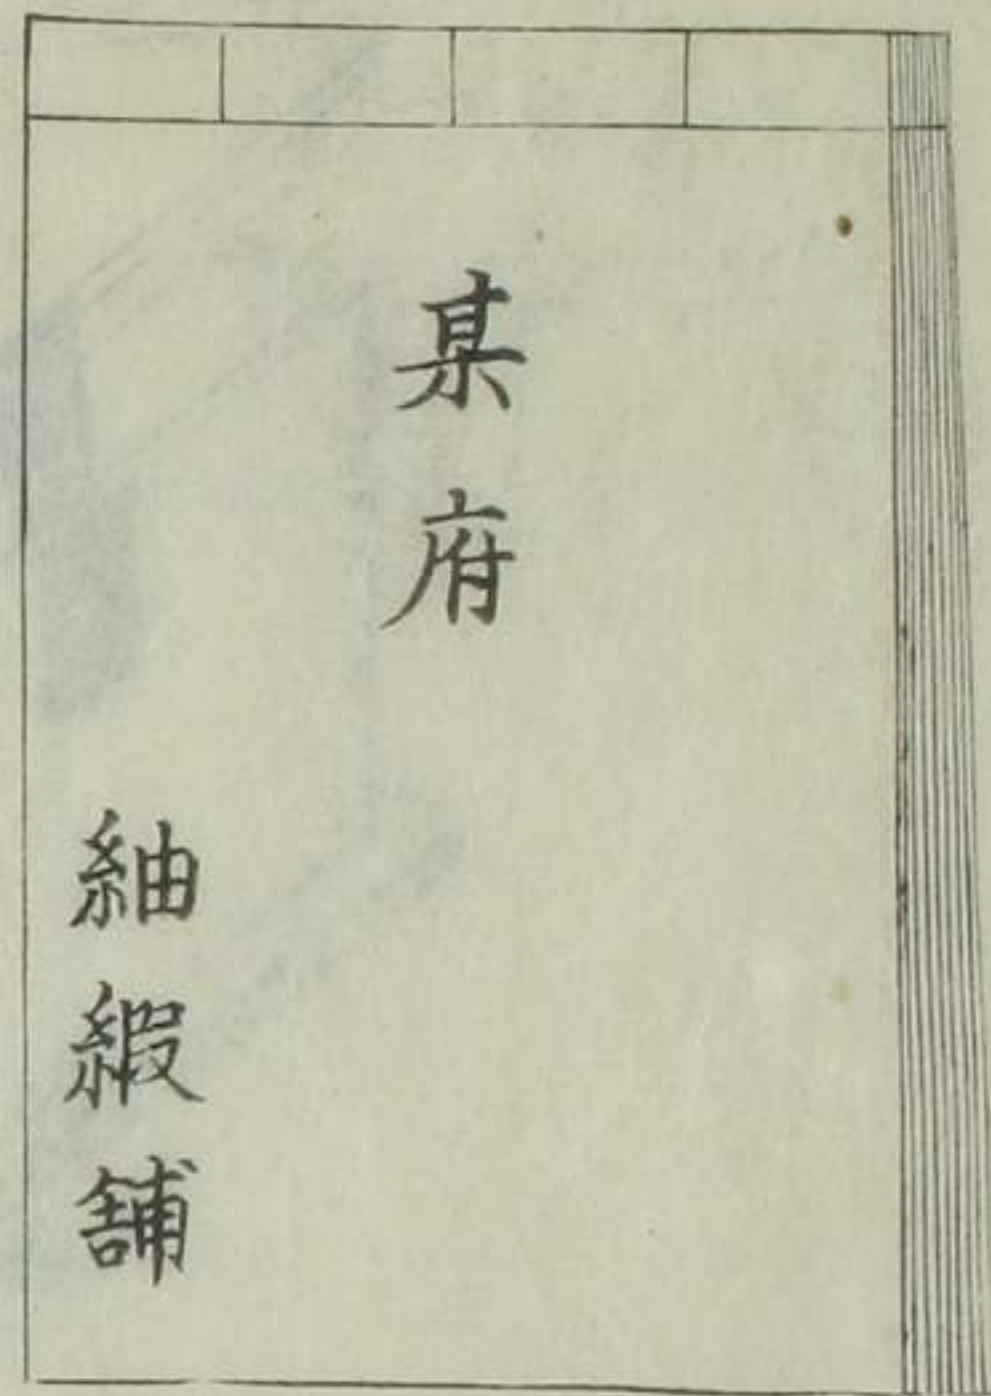 某府
紬緞舖